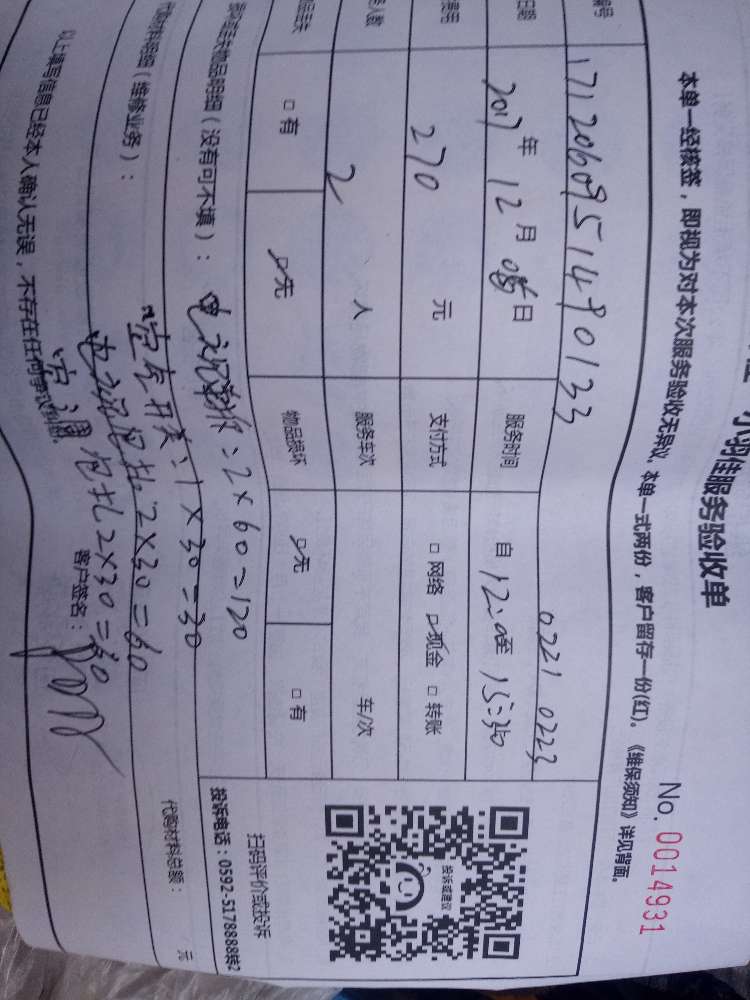 小羽佳服务验收单
No. 0014931
本单一经核签，即视为对本次服务验收无异议。本单一式两份，客户留存一份(红)。《维保须知》详见背面。
编号 17120609514890133 0221 0223
日期 2017年12月06日 服务时间 自12:00至15:30
费用 270元 支付方式 □网络 ☑现金 □转账
人数 2人 服务车次 车/次
□有 ☑无 物品损坏 ☑无 □有
投诉或建议
扫码评价或投诉
投诉电话：0592-5178888转2
物品明细（没有可不填）：
2×60=120
代购材料明细（维修业务）：
空气开关：1×30=30
2×30=60
2×30=60
代购材料总额： 元
以上填写信息已经本人确认无误，不存在任何争议纠纷
客户签名：